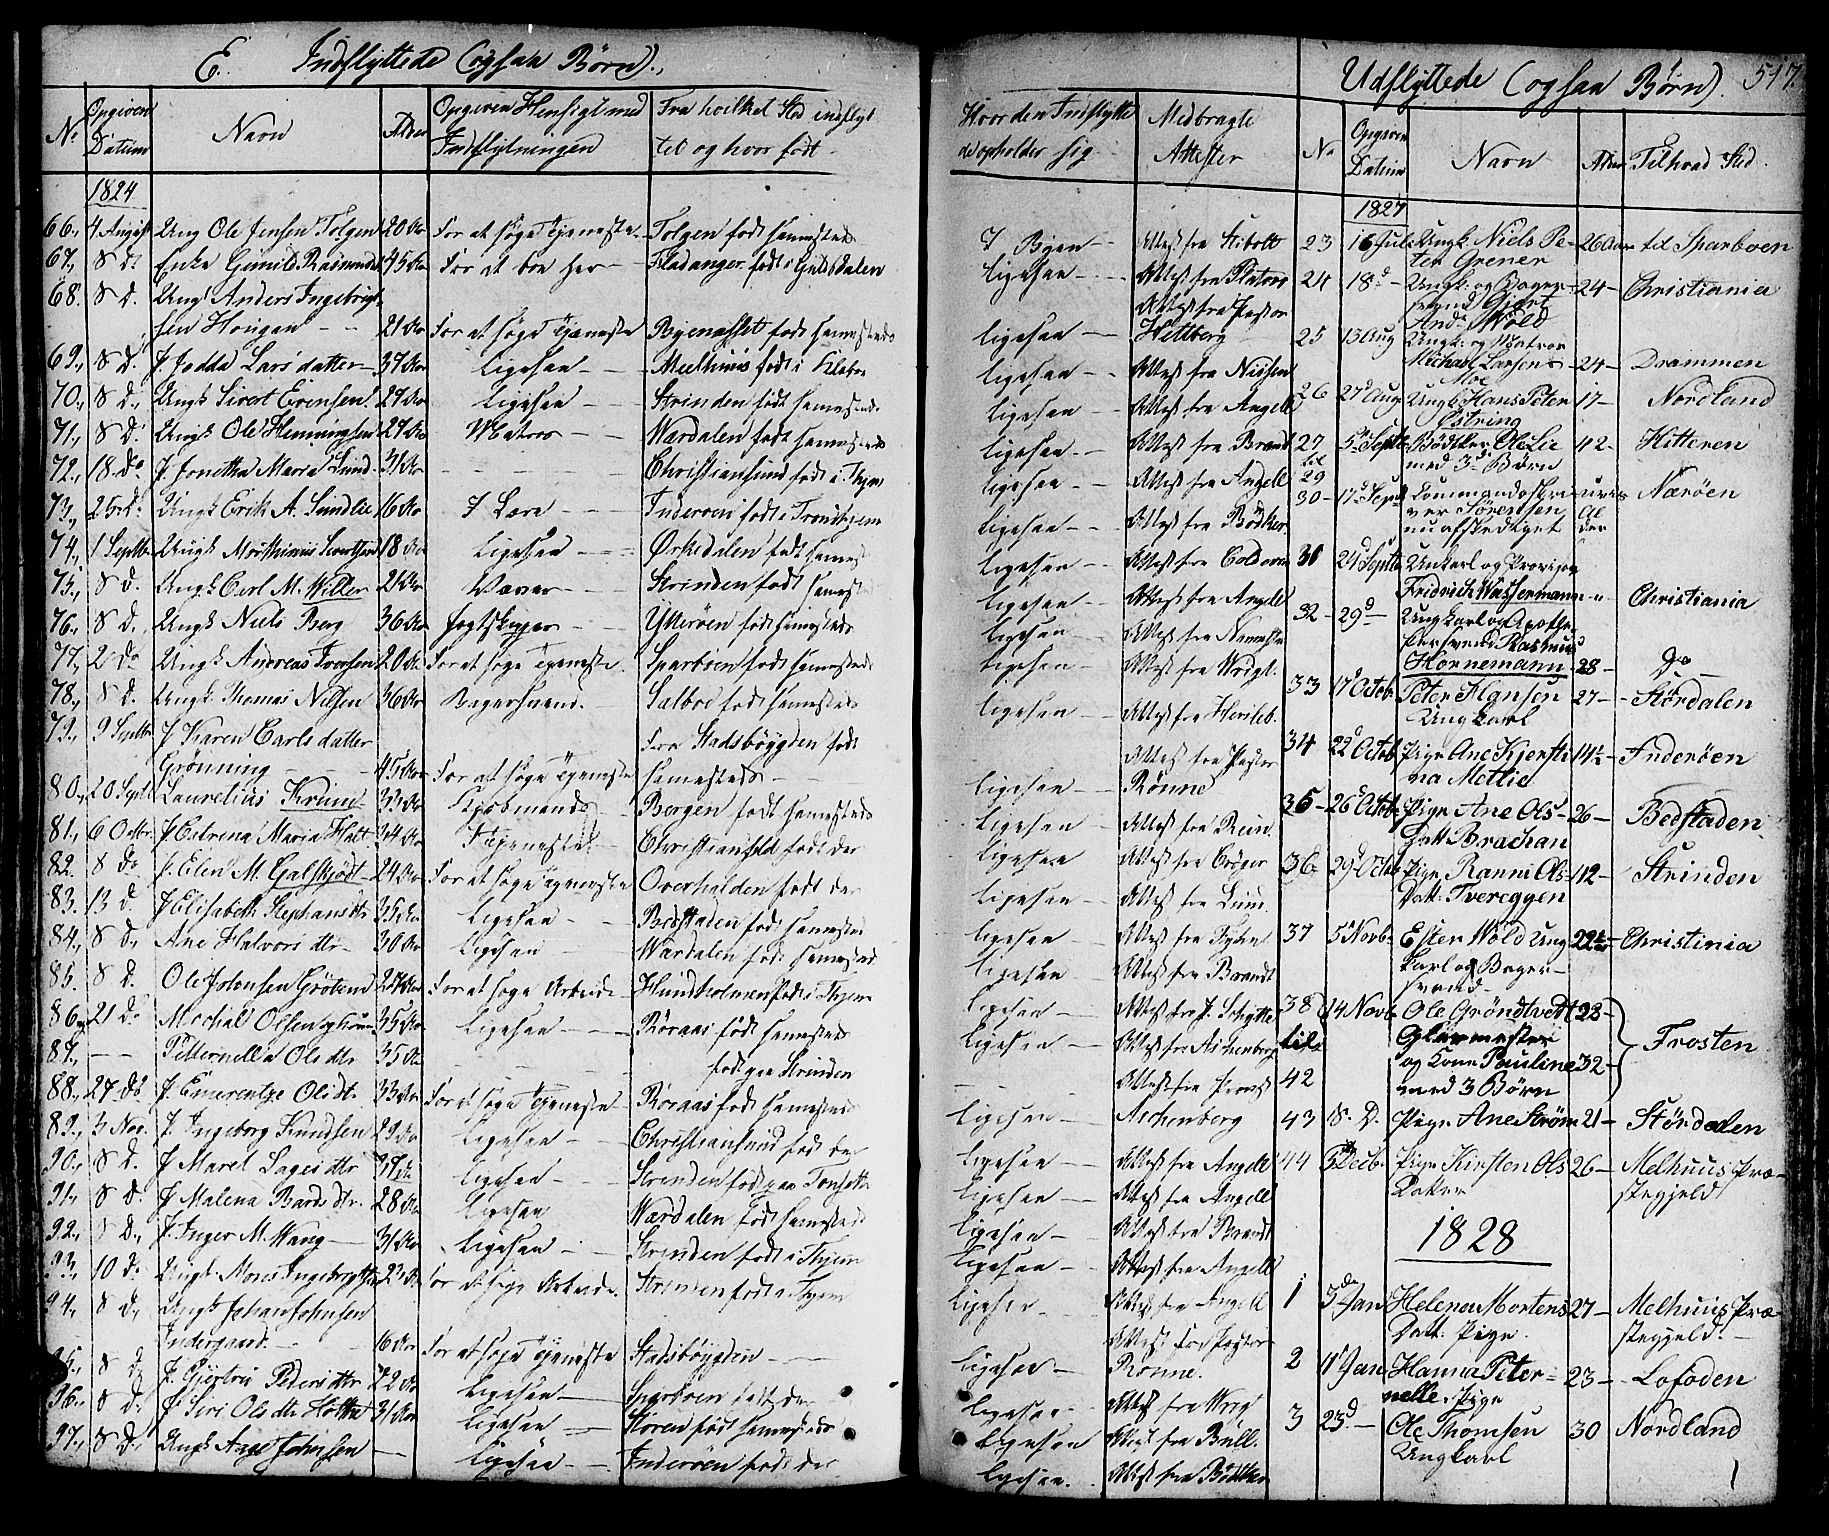 E. Indflyttede (ogsaa Børn).
No Opgiven Datum Navn Alder Opgiven Hensigt med Indflytningen Fra hvilket Sted indflyttet og hvor født
1824
66., 4 August Ung Ole Jensen Tolgen 20 Ar For at søge Tjeneste Tolgen født sammesteds
67., 8 do Enke Rasmusd 45 Ar For at boe her Fladanger født i
68. 8 D. Ungk Anders Ingebrigtsen Hougen 21 Ar For at søge Tjeneste Byenæsset født sammesteds
69., 8 D. P. Jodda Larsdatter 37 Ar Ligesaa Meelhuus født i
70., 8 D., Ungk Sivert Evensen 29 Ar Ligesaa Strinden født sammesteds
71., 8 D. Ungk Ole Henningsen 29 Ar Matros Wærdalen født sammesteds
72., 18 do P. Jonetha Maria Lund 31 Ar Christiansund født i Thjem
73., 25 do Ungk Erik A. Sundlie 16 Ar I Lære Inderøen født i Trondhjem
74., 1 Septbr Ungk 18 Ar Ligesaa Ørkedalen født sammest
75., 8 D. Ungk Carl M. Willer 21 Ar Væver Strinden født sammesteds
76., 8 D., Ungk Niels Berg 36 Ar Jagtskipper Ytterøen født sammesteds
77., 2 Do Ungk Andreas Iversen 20 Ar For at søge Tjeneste Sparboen født sammesteds
78., 8 D. Ungk Thomas Nilsen 36 Ar Bagersvend Salboe født sammesteds
79., 9 Septbr P Karen Carlsdatter Grønning 45 Ar For at søge Tjeneste Fra Stadsbøygden født sammesteds
80., 20 Septb Lauretius Krüm 33 Ar Kjøbmand Bergen født sammesteds
81., 6 Octbr P Catrina Maria Hatt 34 Ar Tjeneste Christiansfeld født der
82. 8 do P. Elen M. Galskjødt 24 Ar For at søge Tjeneste Overhalden født der
83. 13 d. P Elisabeth Stephansdtr 35 Ar Ligesaa Bedstaden født sammesteds
84., 8 D., Ane Halvorsdtr 30 Ar Ligesaa Wærdalen født sammesteds
85. 8 D. Ole Johnsen 27 Ar For at søge Arbeide Hundholmen født i Thjem
86., 21 do Michal Olsen 35 Ar Ligesaa Røraas født sammesteds
87., Petternella Olsdtr 35 Ar født paa Strinden
88., 27 do P. Emerentze Olsdt 33 Ar For at søge Tjeneste Røraas født sammesteds
89., 3 Nov. P. Ingeborg Knudsen 29 Ar Ligesaa Christiansund født der
90., 8 D. P Maret Lagesdtr Ligesaa Strinden født paa Tonsett
91., 8 D. P Malena Bardsdtr. 28 Ar Ligesaa Wærdalen født sammesteds
92., 8 D., P. Inger M. Wang 31 Ar Ligesaa Strinden født i Thjem
93., 10 D. Ungk Mons Ingebrigtsen 23 Ar For at søge Arbeide Strinden født i Thjem
94., 8 D., Ungk Johan Johnsen Indergaard 16 Ar For at søge Tjeneste Stadsbøygden
95., 8 D. P. Gjertru Pedersdtr 22 Ar Ligesaa Sparboen født der
96., 8 D. P Siri Olsdtr 31 Ar Ligesaa Støren født sammesteds
97., 8 D., Ungk Aage Johnsen Ligesaa Inderøen født der
Hvor den Indflyttede opholder sig Medbragte Attester
I Byen Attest fra Stibolt
Ligesaa Attest fra Platou
Ligesaa Attest fra Pastor Heltberg
Ligesaa Attest fra Nissen
Ligesaa Attest fra Angell
Ligesaa Attest fra Brandt
Ligesaa Attest fra Angell
Ligesaa Attest fra Bødker
Ligesaa Attest fra Coldevin
Ligesaa Attest fra Angell
Ligesaa Attest fra
Ligesaa Attest fra Wrigt.
Ligesaa Attest fra Hersleb.
Ligesaa Attest fra Pastor Rønne
Ligesaa Attest fra
Ligesaa Attest fra Crøger
Ligesaa Attest fra
Ligesaa Attest fra
Ligesaa Attest fra Brandt
Ligesaa Attest fra P. Schytte
Ligesaa Attest fra Aschenberg
Attest fra Provst
Ligesaa Aschenberg
Ligesaa Attest fra Angell
Ligesaa Attest fra Angell
Ligesaa Attest fra Brandt
Ligesaa Attest fra Angell
Ligesaa Attest fra Angell
Ligesaa Attest fra Pastor Rønne.
Ligesaa Attest fra Wrigt
Ligesaa Attest fra Bull.
Ligesaa. Attest fra Bødtker
Udflyttede (ogsaa Børn). 517.
No Opgiven Datum Navn Alder Til hvad Sted.
1827
23 16 Juli Ungk. Niels Peter Grener 26 Aar til Sparboen
24 18d Ungk: og Bagersvend Gjert And: Wold 24 Christiania
25 13 Aug Ungk: og Matros Michael Larsen Moe 24 Drammen
26 27d Aug Ungk Hans Peter Østring 17 Nordland
27 til 29 5te Septb Bødtker Ole Lie med 3de Børn 42 Hitteren
30 17d Septb Commandoskriver Sørensen nu afskediget uvis Alder Nærøen
31 24d Septb Unkarl og Provisor Fridrich Wassermann " Christiania
32 29d Ungkarl og Apothekersvend Rasmus Hornemann 28 Do
33 17 Octob Peter Hansen Ungkarl 27 Størdalen
34 22d Octob Pige Ane Kjerstina Mettie 14½ Inderøen
35 26d Octob Pige Ane Olsdatt Brachan 26 Bedstaden.
36 29d Octob Pige Ranni Olsdatt: Tvereggen 12 Strinden
37 5te Novb Esten Wold Ungkarl og Bagersvend 22½ Christinia
38 til 42 14 Novb Ole Grøndtvedt 28 Glarmester og Kone Pauline 32 med 3 Børn Frosten
43 18. D. Pige Ane Strøm 21 Størdalen
44 3 Decb. Pige Kirsten Olsdatter 26 Melhuus Præstegjeld
1828
1 3de Jan Helena Mortensdatt: Pige. 27 Melhuus Præstegjeld.
2 11 Jan Hanna Peternelle Pige 23 Lofoden
3 23d Ole Thomsen Ungkarl 30 Nordland